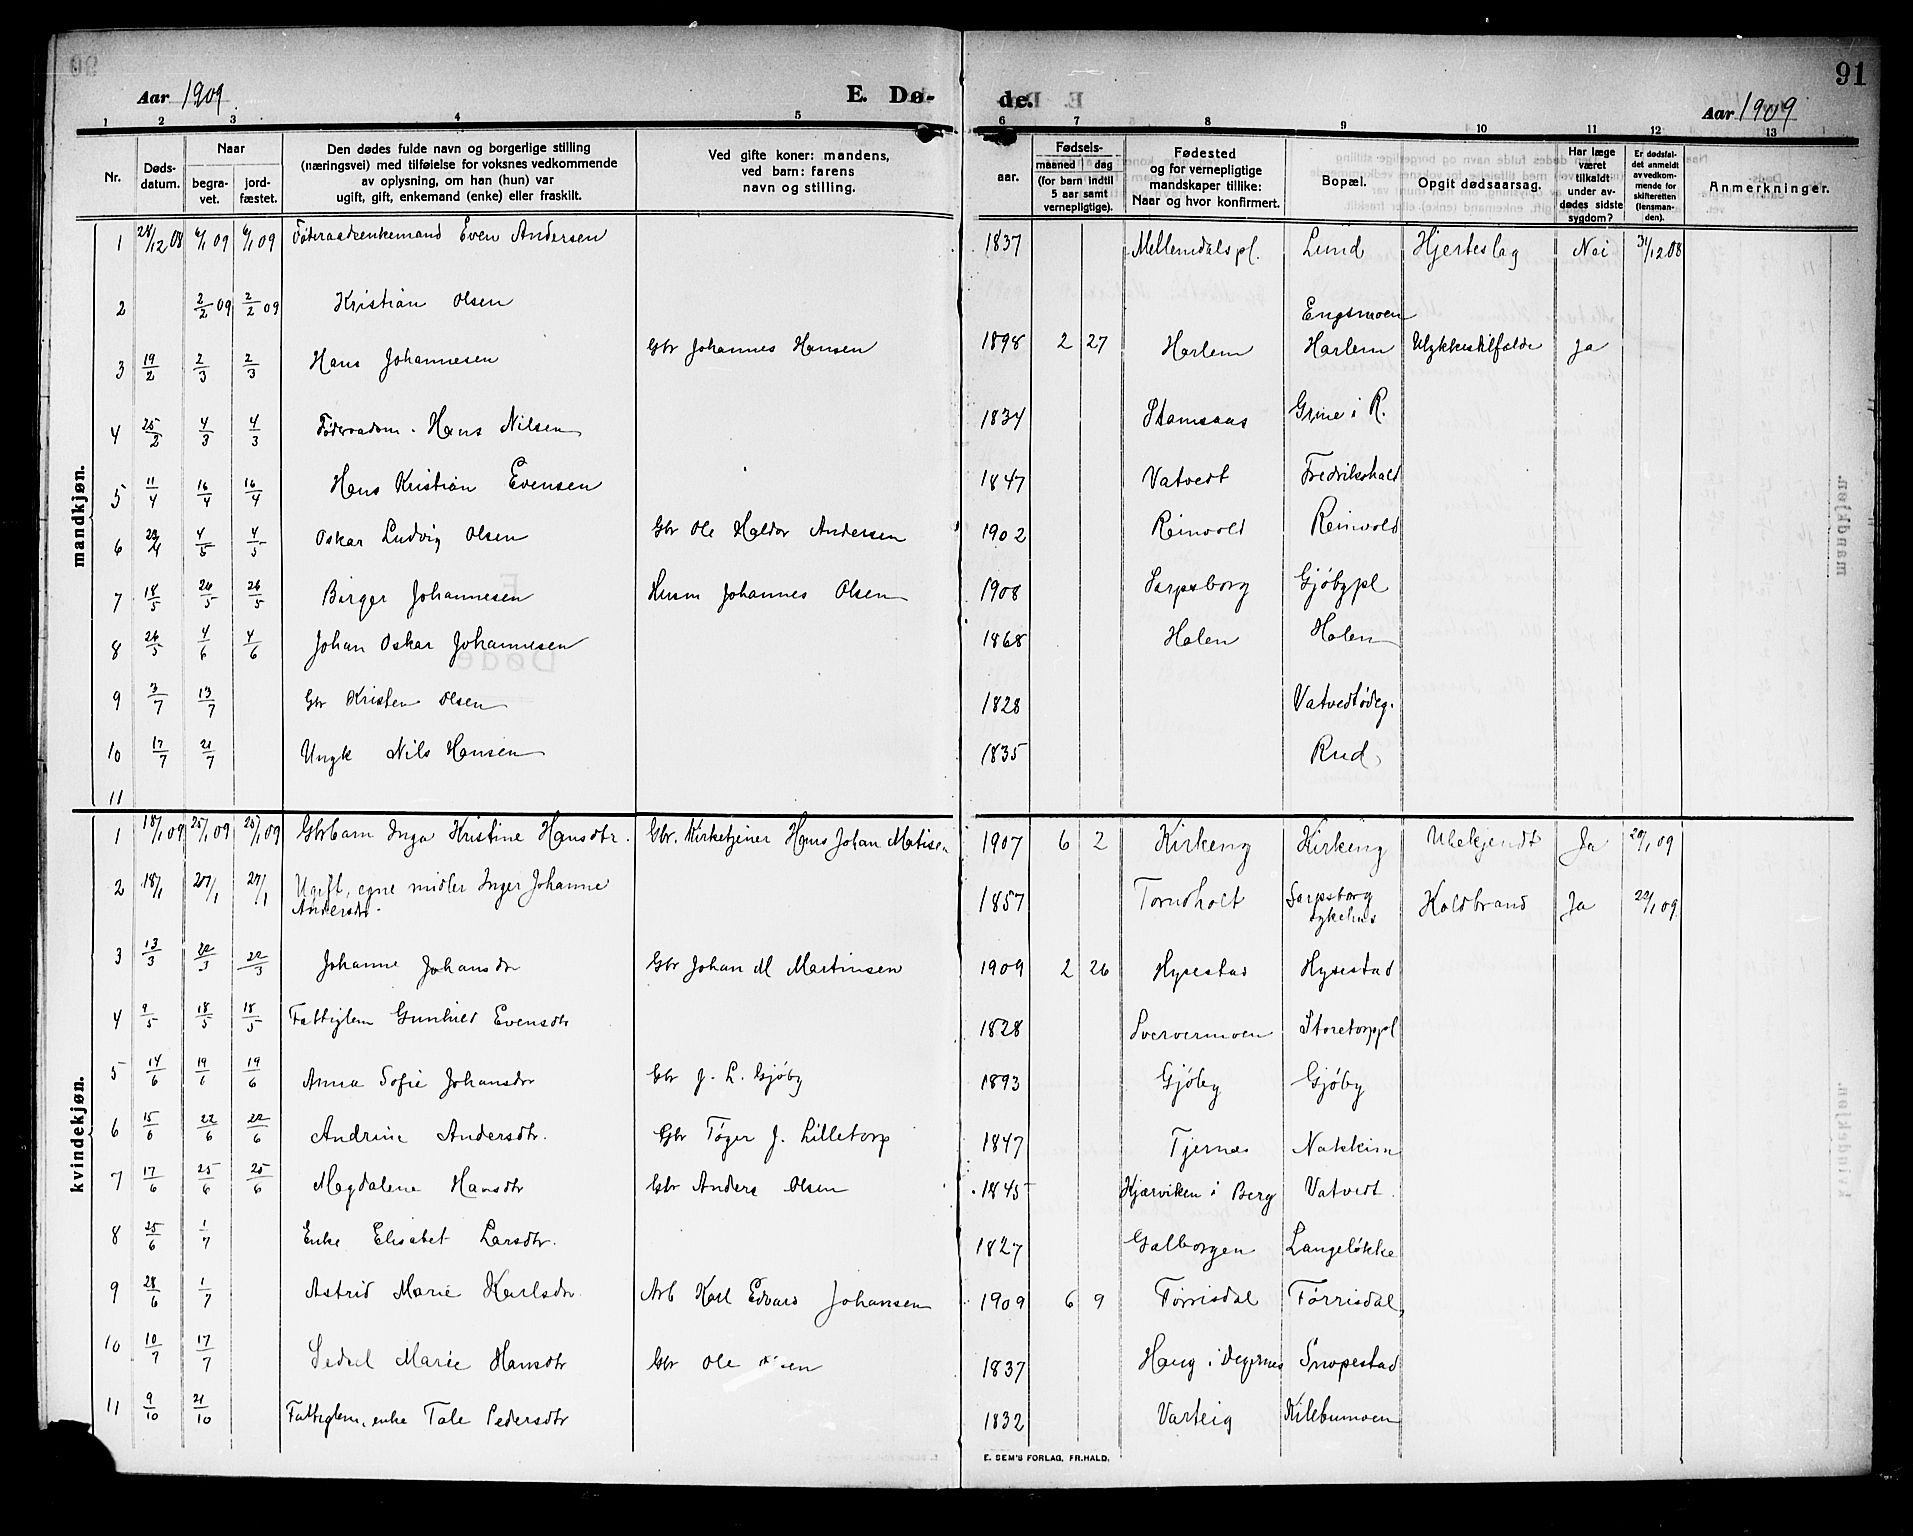 91
Aar 1909.
E. Dø-
de.
Aar 1909
1 2 3 4 5 6 7 8 9 10 11 12 13
Nr.
Døds-
datum.
Naar
begra-
vet.
jord-
fæstet.
Den dødes fulde navn og borgerlige stilling
(næringsvei) med tilføielse for voksnes vedkommende
av oplysning, om han (hun) var
ugift, gift, enkemand (enke) eller fraskilt.
Ved gifte koner: mandens,
ved barn: farens
navn og stilling.
aar.
Fødsels-
maaned dag
(for barn indtil
5 aar samt
vernepligtige).
Fødested
og for vernepligtige
mandskaper tillike:
Naar og hvor konfirmert.
Bopæl.
Opgit dødsaarsag.
Har læge
været
tilkaldt
under av-
dødes sidste
sygdom?
Er dødsfal-
det anmeldt
av vedkom-
mende for
skifteretten
(lensman-
den).
Anmerkninger.
mandkjøn.
1 28/12 08 6/1 09 6/1 09 Føderaadsenkemand Even Andersen 1837 Mellemdalspl. Lund Hjerteslag Nei 31/12 08
2 2/2 09 2/2 09 Kristian Olsen Engsmoen
3 19/2 2/3 2/3 Hans Johannesen Gbr Johannes Hansen 1898 2 27 Harlem Harlem Ulykkestilfælde Ja
4 25/2 4/3 4/3 Føderaadsm. Hans Nilsen 1834 Stamsaas Grine i R.
5 11/4 16/4 16/4 Hans Kristian Evensen 1847 Vatvedt Fredrikshald
6 4/5 4/5 Oskar Ludvig Olsen Gbr Ole Haldor Andersen 1902 Reinvold Reinvold
7 18/5 26/5 26/5 Birger Johannesen Husm Johannes Olsen 1908 Sarpsborg Gjøbypl
8 26/5 4/6 4/6 Johan Oskar Johannesen 1868 Holen Holen
9 3/7 13/7 Gbr Kristen Olsen 1828 Vatvedtødeg.
10 17/7 21/7 Ungk Nils Hansen 1835 Rud
11
kvindekjøn.
1 18/1 09 25/1 09 25/1 09 Gbrbarn Inga Kristine Hansdtr. Gbr. Kirketjener Hans Johan Matisen 1907 6 2 Kirkeng Kirkeng Ubekjendt Ja 20/1 09
2 18/1 27/1 27/1 Ugift, egne midler Inger Johanne
Andersdtr. 1857 Tornholt Sarpsborg
sykehus Koldbrand Ja 22/1 09
3 13/3 22/3 22/3 Johanne Johansdtr Gbr Johan M Martinsen 1909 2 26 Hysestad Hysestad
4 9/5 18/5 18/5 Fattiglem Gunhild Evensdtr 1828 Sververmoen Storetorppl
5 14/6 19/6 19/6 Anna Sofie Johansdtr Gbr J. L. Gjøby 1893 Gjøby Gjøby
6 15/6 22/6 22/6 Andrine Andersdtr. Gbr Tøger J. Lilletorp 1847 Tjernes Natskim
7 17/6 25/6 25/6 Magdalene Hansdtr Gbr Anders Olsen 1845 Kjærviken i Berg Vatvedt
8 25/6 1/7 Enke Elisabet Larsdtr. 1827 Galborgen Langeløkke
9 28/6 1/7 Astrid Marie Karlsdtr. Arb Karl Edvard Johansen 1909 6 9 Førrisdal Førrisdal
10 10/7 17/7 Sedsel Marie Hansdtr Gbr Ole 1837 Haug i Degernes Snopestad
11 9/10 21/10 Fattiglem, enke Tale Pedersdtr 1832 Varteig Kilebumoen
E. SEM'S FORLAG, FR.HALD.